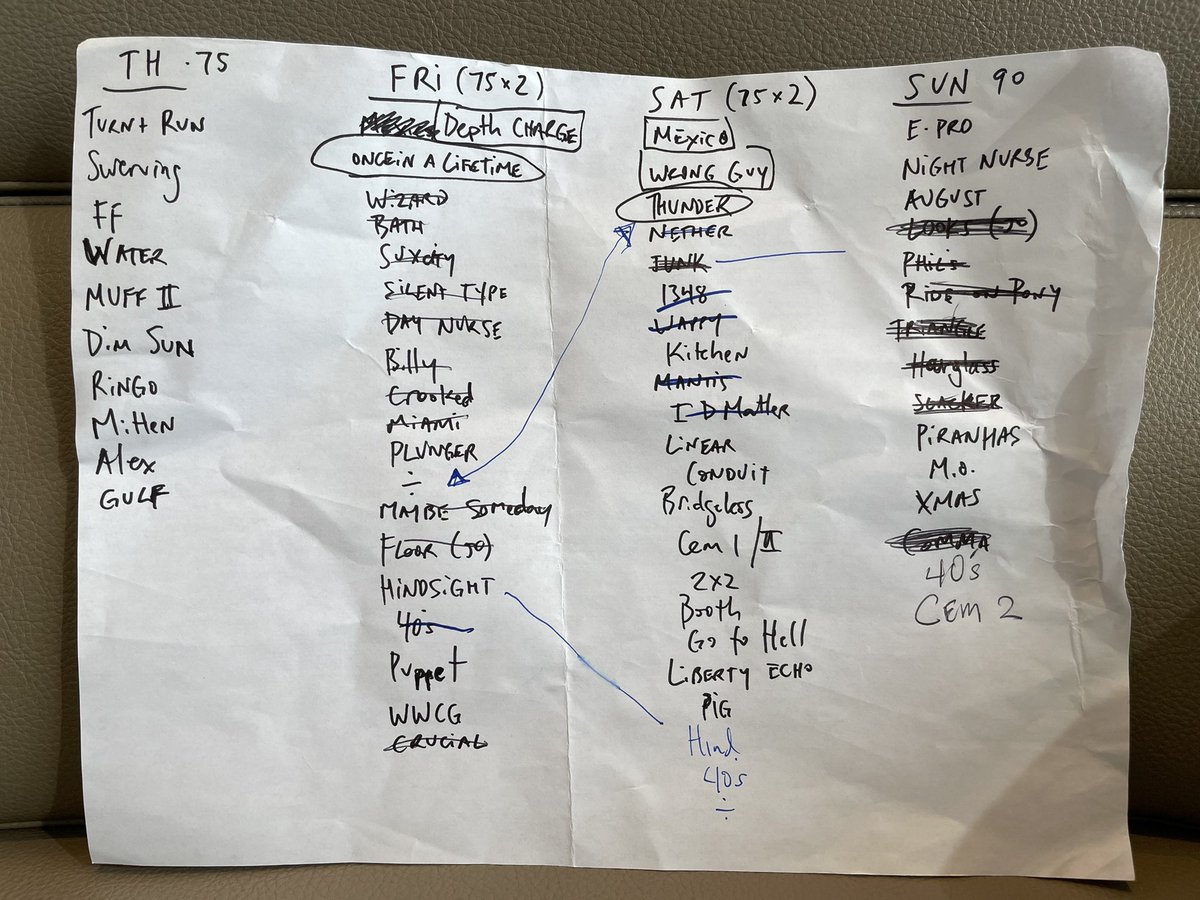 TH .75
TURN + RUN
Swerving
FF
WATER
MUFF II
Dim SUN
RiNGO
Mitten
Alex
GULF
FRi (75x2)
Depth CHARGE
ONCE IN A LIFETIME
WIZARD
BATH
Suxcity
SILENT TYPE
DAY NURSE
Billy
Crooked
MIAMI
PLUNGER
÷
MAYBE Someday
FLOOR (JO)
HINDSIGHT
40s
Puppet
WWCG
CRUCIAL
SAT (75x2)
Mexico
WRONG GUY
THUNDER
NETHER
JUNK
1348
WAPPY
Kitchen
MANTIS
I D Matter
LINEAR
CONDUIT
Bridgeless
Cem 1/II
2x2
Booth
Go to Hell
LIBERTY ECHO
PIG
Hind.
40s
÷
SUN 90
E-PRO
NIGHT NURSE
AUGUST
LOOKS (JO)
PHIL'S
RIDE ON PONY
TRIANGLE
Hourglass
SLACKER
PIRANHAS
M.O.
XMAS
COMMA
40's
Cem 2